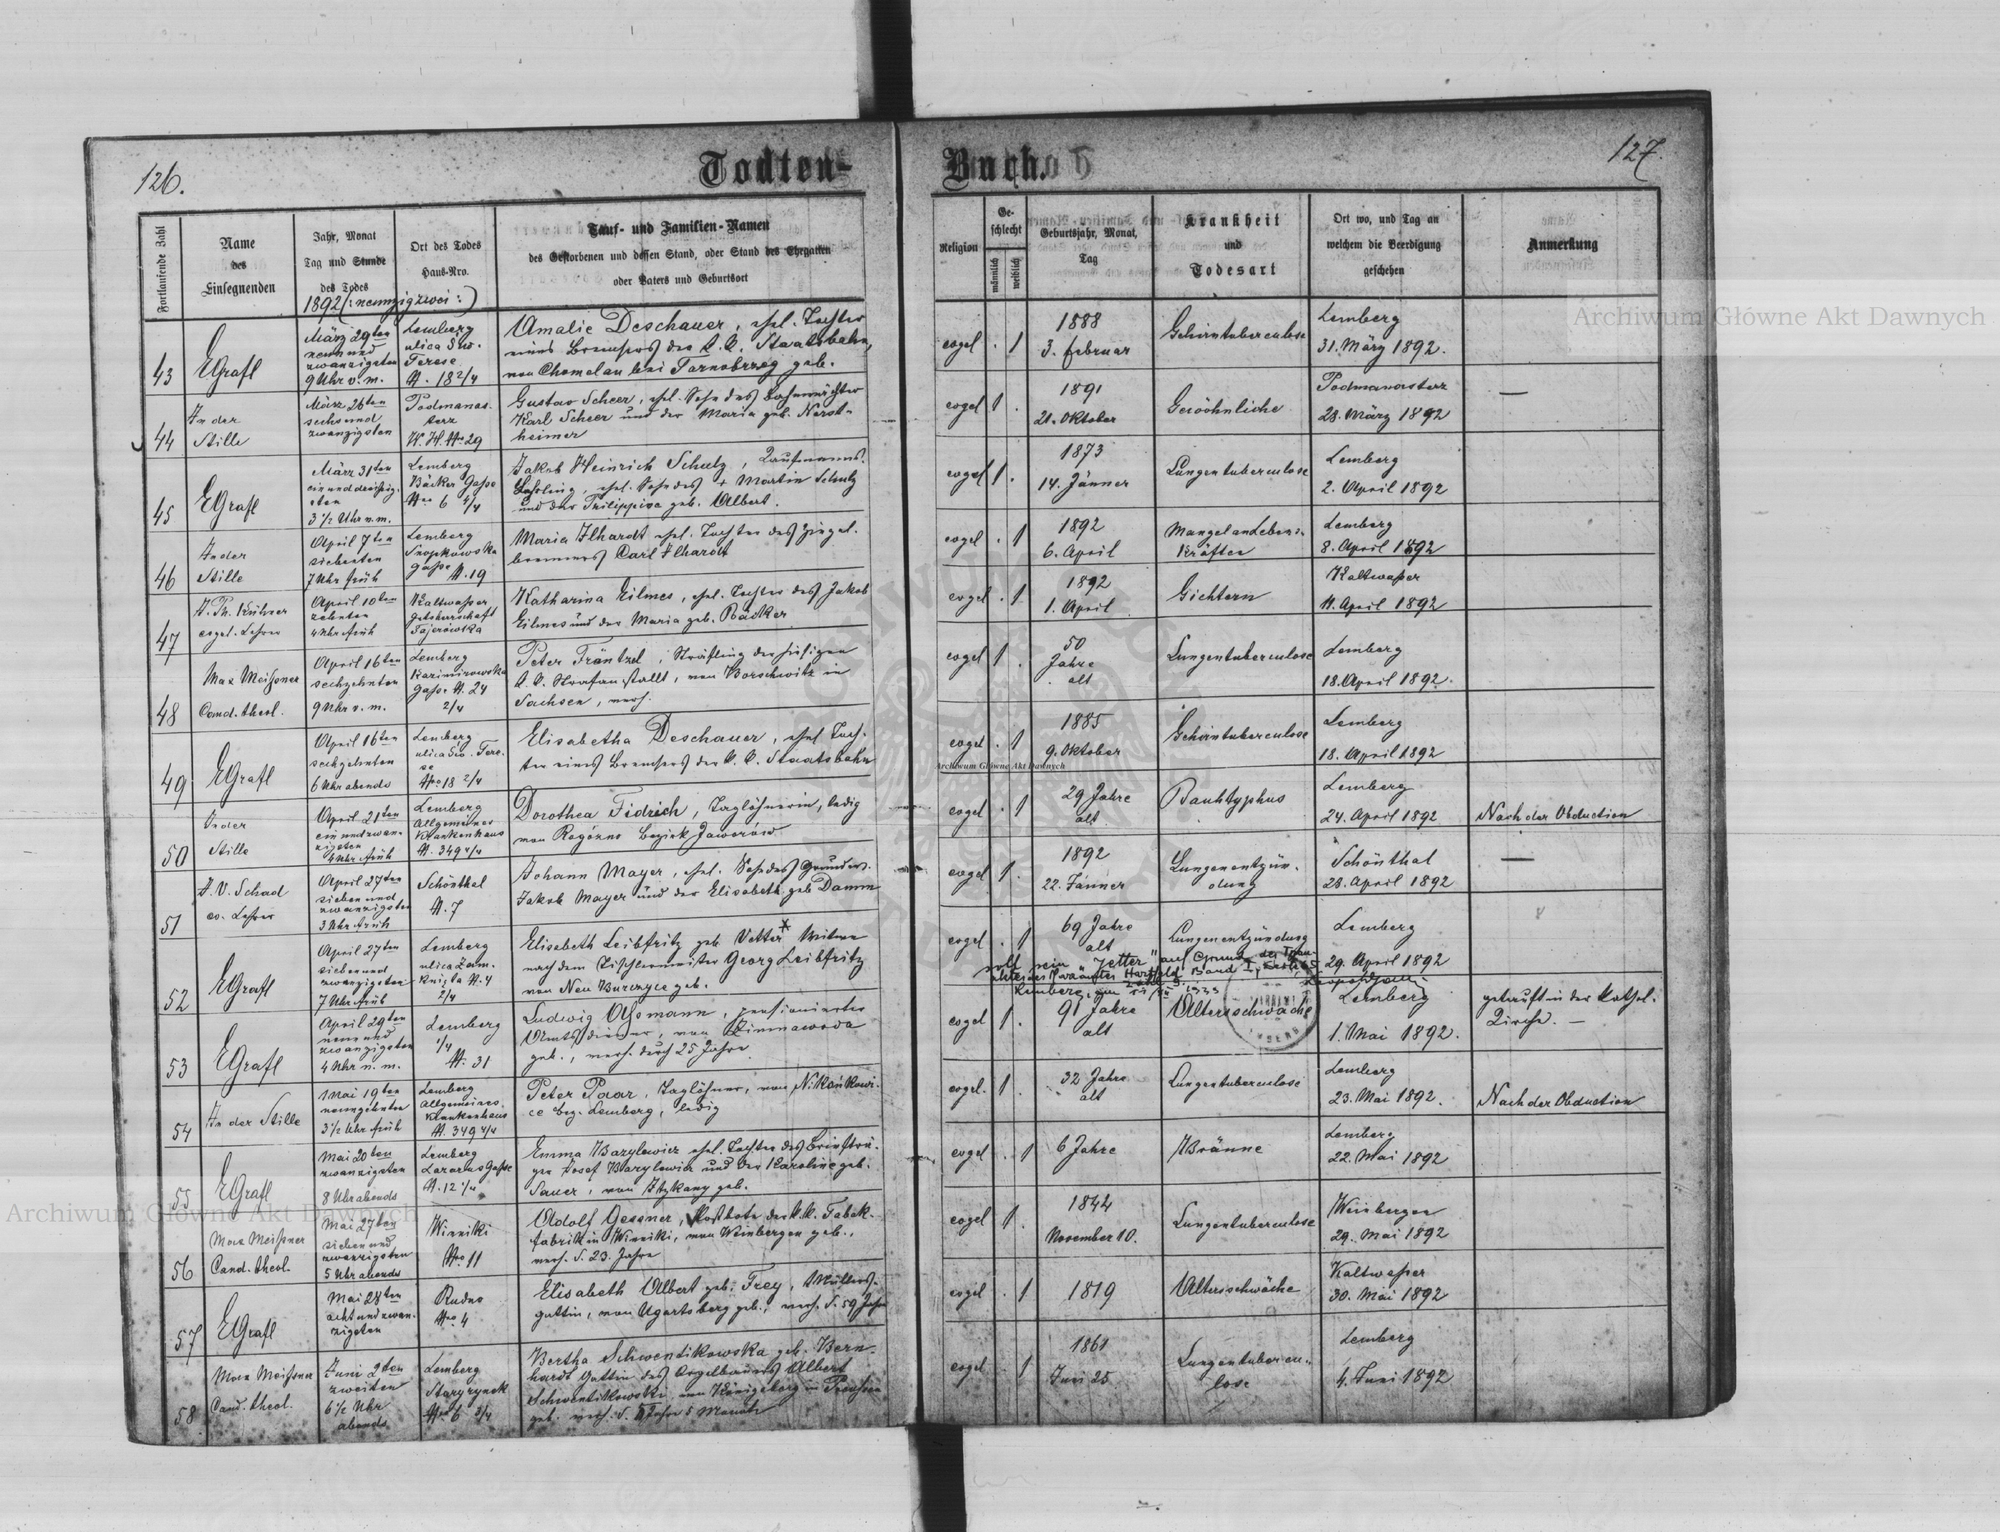 126.
Todten-
Fortlaufende Zahl
Name
des
Einsegnenden
Jahr, Monat
Tag und Stunde
des Todes
Ort des Todes
Haus-Nro.
Tauf- und Familien-Namen
des Gestorbenen und dessen Stand, oder Stand des Ehegatten
oder Vaters und Geburtsort
1892 (: neunzigzwei :)
43
EGrafl
März 29ten
neun und
zwanzigsten
9 Uhr v. m.
Lemberg
ulica Sw.
Terese
N. 18 2/4
Amalie Deschauer, ehel. Tochter
eines Bremsers der k. k. Staatsbahn,
von Chomelau bei Tarnobrzeg geb.
44
In der
Stille
März 26ten
sechs und
zwanzigsten
Podmanas-
terz
W. H. Nro 29
Gustav Scheer, ehel. Sohn des Bahnwächter
Karl Scheer und der Maria geb.
heimer
45
EGrafl
März 31ten
ein und dreissig-
sten
3 1/2 Uhr n. m.
Lemberg
Bäcker Gasse
Nro 6 4/4
Jakob Heinrich Schulz, Kaufmanns-
Lehrling, ehel. Sohn des + Martin Schulz
und der Philippine geb. Albert.
46
In der
Stille
April 7ten
siebenten
7 Uhr früh
Lemberg
Snopkowska
gasse N. 19
Maria Ilhardt ehel. Tochter des Ziegel-
brenners Carl Ilhardt
47
A. Ph. Kühner
evgel. Lehrer
April 10ten
zehnten
4 Uhr früh
Kaltwasser
gutsherrschaft
Tajerówka
Katharina Eilmes, ehel. Tochter des Jakob
Eilmes und der Maria geb. Rädker
48
Max Meißner
Cand. theol.
April 16ten
sechzehnten
9 Uhr v. m.
Lemberg
Kazimirowska
Gasse N. 24
2/4
Peter Fräntzel, Sträfling der hiesigen
k. k. Strafanstallt, von Borschwitz in
Sachsen, verh.
49
EGrafl
April 16ten
sechzehnten
6 Uhr abends
Lemberg
ulica Sw. Tere-
se
Nro 18 2/4
Elisabetha Deschauer, ehel. Toch-
ter eines Bremsers der k. k. Staatsbahn
50
In der
Stille
April 21ten
ein und zwan-
zigsten
4 Uhr früh
Lemberg
Allgemeines
Krankenhaus
N. 349 4/4
Dorothea Fidrich, Taglöhnerin, ledig
von Rogózno Bezirk Jaworów
51
A. V. Schad
ev. Lehrer
April 27ten
sieben und
zwanzigsten
3 Uhr früh
Schönthal
N. 7
Johann Mayer, ehel. Sohn des Grundw.
Jakob Mayer und der Elisabeth geb Damm
52
EGrafl
April 27ten
sieben und
zwanzigsten
7 Uhr früh
Lemberg
ulica Zam-
knięta N. 4
2/4
Elisabeth Leibfritz geb. Vetter* Witwe
nach dem Tischlermeister Georg Leibfritz
von Neu Burczyce geb.
53
EGrafl
April 29ten
neun und
zwanzigsten
4 Uhr n. m.
Lemberg
1/4
N. 31
Ludwig Assmann, pensionierter
Amtsdiener, von Zimnawoda
geb., verh. durch 25 Jahre
54
In der Stille
Mai 19ten
neunzehnten
3 1/2 Uhr früh
Lemberg
Allgemeines
Krankenhaus
N. 349 4/4
Peter Paar, Taglöhner, von Nikonkowi-
ce bez. Lemberg, ledig
55
EGrafl
Mai 20ten
zwanzigsten
8 Uhr abends
Lemberg
Lazarus Gasse
N. 12 1/4
Emma Bazylewicz ehel. Tochter des Briefträ-
gers Josef Bazylewicz und der Karoline geb.
Sauer, von Itzkany geb.
56
Max Meißner
Cand. theol.
Mai 27ten
sieben und
zwanzigsten
5 Uhr abends
Winniki
Nro 11
Adolf Gessner, Postbote der k. k. Tabak-
fabrik in Winniki, von Weinbergen geb.,
verh. d. 23 Jahre
57
EGrafl
Mai 28ten
acht und zwan-
zigsten
Rudno
Nro 4
Elisabeth Albert geb. Frey, Müllers-
gattin, von Ugartsberg geb., verh. d. 59 Jahre
58
Max Meißner
Cand. theol.
Juni 2ten
zweiten
6 1/2 Uhr
abends
Lemberg
Staryrynek
Nro 6 3/4
Bertha Schwentikowska geb. Bern-
hardt Gattin des Orgelbauers Albert
Schwentikowski, von Königsberg in Preußen
geb. verh. d. Jahre 5 Monate
127.
Buch.
Religion
Ge-
schlecht
männlich
weiblich
Geburtsjahr, Monat,
Tag
Krankheit
und
Todesart
Ort wo, und Tag an
welchem die Beerdigung
geschehen
Anmerkung
evgel . 1
1888
3. Februar
Gehirntuberculose
Lemberg
31. März 1892.
evgel 1 .
1891
21. Oktober
Gewöhnliche
Podmanasterz
28. März 1892
—
evgel 1 .
1873
14. Jänner
Lungentuberculose
Lemberg
2. April 1892
evgel . 1
1892
6. April
Mangel an Lebens-
kräften
Lemberg
8. April 1892
evgel . 1
1892
1. April
Gichtern
Kaltwasser
11. April 1892
evgel 1 .
50
Jahre
alt
Lungentuberculose
Lemberg
18. April 1892.
evgel . 1
1885
9. Oktober
Gehirntuberculose
Lemberg
18. April 1892
evgel . 1
29 Jahre
alt
Bauhtyphus
Lemberg
24. April 1892
Nach der Obduction
evgel 1 .
1892
22. Jänner
Lungenentzün-
dung
Schönthal
28. April 1892
—
evgel . 1
69 Jahre
alt
Lungenentzündung
Lemberg
29. April 1892
soll sein "Jetter" auf Grund des Trau-
Band I,
Lemberg, am
evgel 1 .
91 Jahre
alt
Altersschwäche
Lemberg
1. Mai 1892.
getauft in der kathol.
Kirche. —
evgel. 1 .
32 Jahre
alt
Lungentuberculose
Lemberg
23. Mai 1892.
Nach der Obduction
evgel . 1
6 Jahre
Bräune
Lemberg
22. Mai 1892
evgel 1 .
1844
November 10.
Lungentuberculose
Weinbergen
29. Mai 1892
evgel . 1
1819
Altersschwäche
Kaltwasser
30. Mai 1892
evgel . 1
1861
Juni 25.
Lungentubercu-
lose
Lemberg
4. Juni 1892
Archiwum Główne Akt Dawnych
Archiwum Główne Akt Dawnych
Archiwum Główne Akt Dawnych